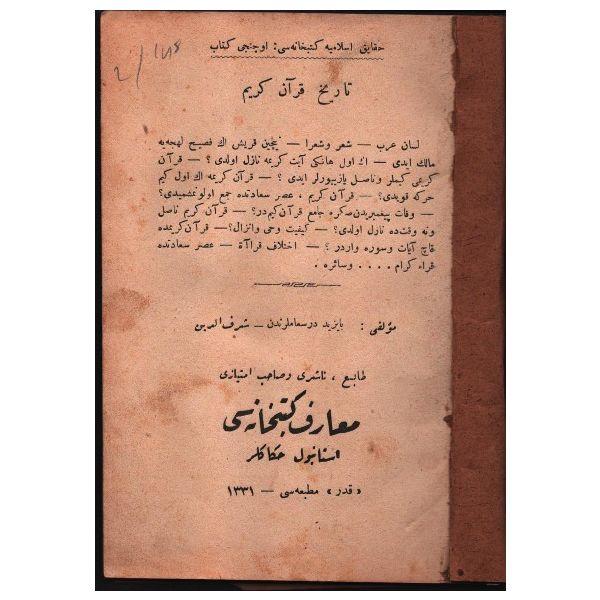 حقایق اسلامیه کتبخانه‌سی: اوچنجی کتاب
تاریخ قرآن کریم
لسان عرب — شعر وشعرا — نیچین قریش اك فصیح لهجه‌یه
مالك ایدی — اك اول هانکی آیت کریمه نازل اولدی؟ — قرآن
کریمی کیملر وناصل یازیورلر ایدی؟ — قرآن کریمه اك اول کیم
حرکه قویدی؟ — قرآن کریم، عصر سعادتده جمع اولونمشمیدی؟
— وفات پیغمبریدن صکره جامع قرآن کیم‌در؟ — قرآن کریم ناصل
ونه وقت‌ده نازل اولدی؟ — کیفیت وحی وانزال؟ — قرآن کریمده
قاچ آیات وسوره واردر؟ — اختلاف قراآة — عصر سعادتده
قراء کرام .... وسائره.
مؤلفی: بایزید درسعاملرندن — شرف الدین
طابع، ناشری وصاحب امتیازی
معارف کتبخانه‌سی
استانبول حکاکلر
«قدر» مطبعه‌سی — ۱۳۳۱